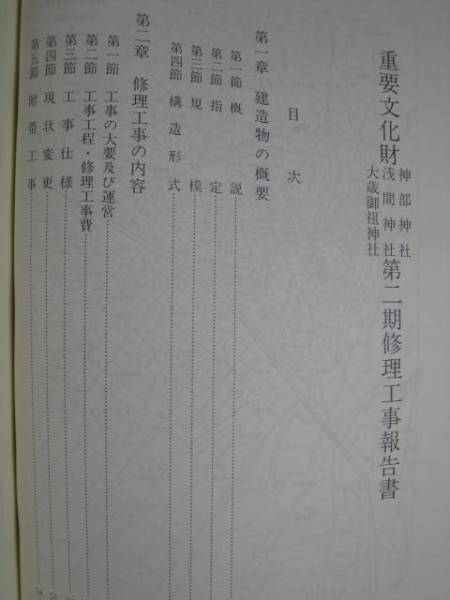 重要文化財 神部神社 浅間神社 大歳御祖神社 第二期修理工事報告書
目次
第一章 建造物の概要
第一節 概説
第二節 指定
第三節 規模
第四節 構造形式
第二章 修理工事の内容
第一節 工事の大要及び運営
第二節 工事工程・修理工事費
第三節 工事仕様
第四節 現状変更
第五節 附帯工事